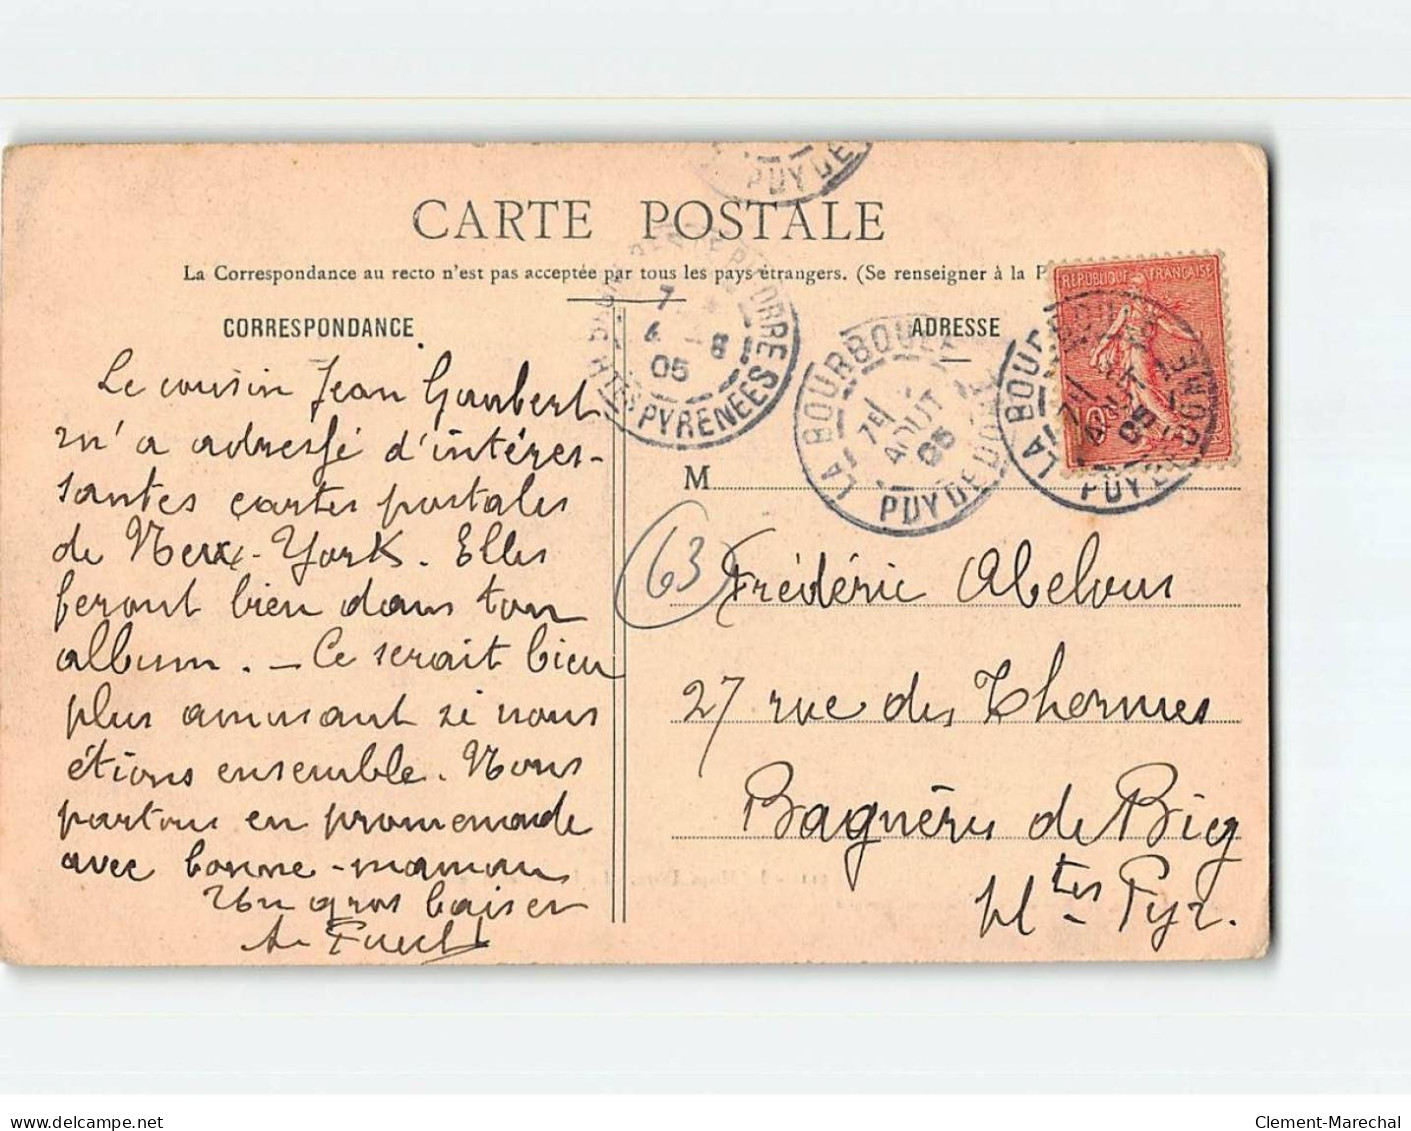 PUY DE
CARTE POSTALE
La Correspondance au recto n'est pas acceptée par tous les pays étrangers. (Se renseigner à la P
CORRESPONDANCE
Le cousin Jean Goubert
m'a adressé d'intéres-
santes cartes postales
de New-York. Elles
feront bien dans ton
album. - Ce serait bien
plus amusant si nous
étions ensemble. Nous
partons en promenade
avec bonne-maman
Un gros baiser
BIGORRE
HTES PYRENEES
7
4 -8
05
LA BOURBOULE
PUY DE DOME
7E/
AOUT
05
ADRESSE
REPUBLIQUE FRANÇAISE
10
LA BOURBOULE
PUY DE DOME
7E/
AOUT
05
M
63
Frédéric Abelous
27 rue des Thermes
Bagnères de Big
Htes Pyr.
delcampe.net
Clement-Marechal